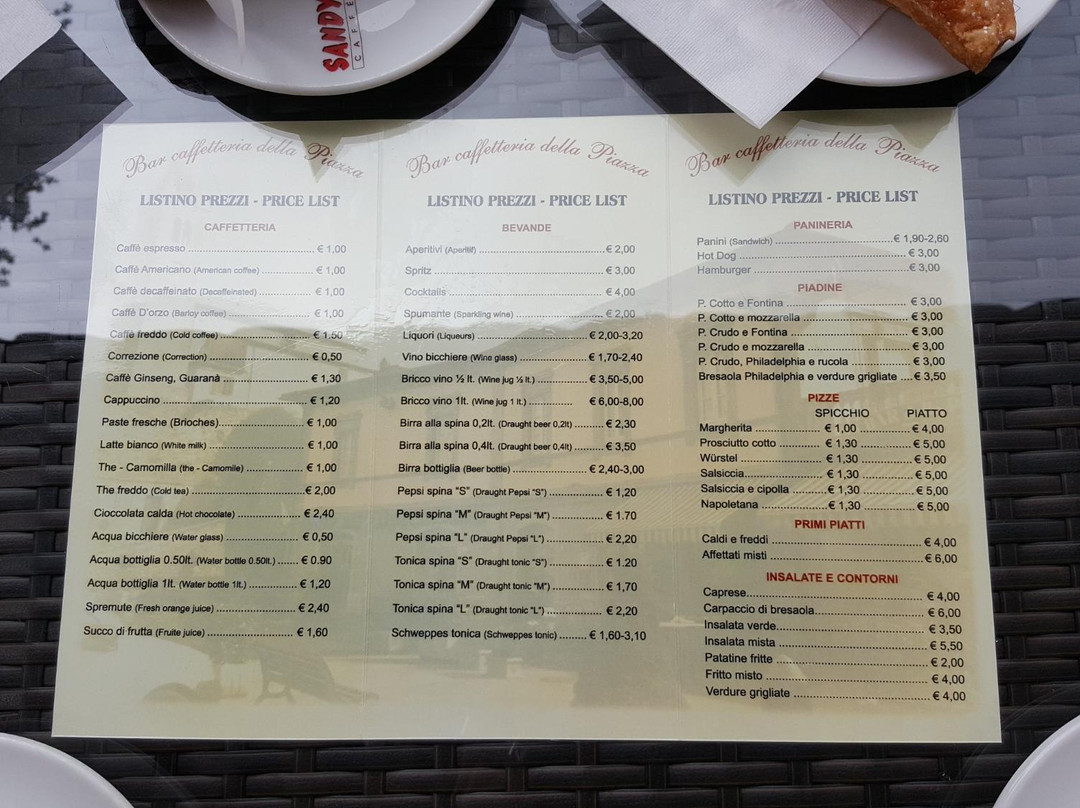 SANDY
CAFFÈ
Bar caffetteria della Piazza
LISTINO PREZZI - PRICE LIST
CAFFETTERIA
Caffè espresso € 1,00
Caffè Americano (American coffee) € 1,00
Caffè decaffeinato (Decaffeinated) € 1,00
Caffè D'orzo (Barloy coffee) € 1,00
Caffè freddo (Cold coffee) € 1.50
Correzione (Correction) € 0,50
Caffè Ginseng, Guaranà € 1,30
Cappuccino € 1,20
Paste fresche (Brioches) € 1,00
Latte bianco (White milk) € 1,00
The - Camomilla (the - Camomile) € 1,00
The freddo (Cold tea) € 2,00
Cioccolata calda (Hot chocolate) € 2,40
Acqua bicchiere (Water glass) € 0,50
Acqua bottiglia 0.50lt. (Water bottle 0.50lt.) € 0.90
Acqua bottiglia 1lt. (Water bottle 1lt.) € 1,20
Spremute (Fresh orange juice) € 2,40
Succo di frutta (Fruite juice) € 1,60
Bar caffetteria della Piazza
LISTINO PREZZI - PRICE LIST
BEVANDE
Aperitivi (Aperitif) € 2,00
Spritz € 3,00
Cocktails € 4,00
Spumante (Sparkling wine) € 2,00
Liquori (Liqueurs) € 2,00-3,20
Vino bicchiere (Wino glass) € 1,70-2,40
Bricco vino ½ lt. (Wine jug ½ lt.) € 3,50-5,00
Bricco vino 1lt. (Wine jug 1 lt.) € 6,00-8,00
Birra alla spina 0,2lt. (Draught beer 0,2lt) € 2,30
Birra alla spina 0,4lt. (Draught beer 0,4lt) € 3,50
Birra bottiglia (Beer bottle) € 2,40-3,00
Pepsi spina "S" (Draught Pepsi "S") € 1,20
Pepsi spina "M" (Draught Pepsi "M") € 1.70
Pepsi spina "L" (Draught Pepsi "L") € 2,20
Tonica spina "S" (Draught tonic "S") € 1.20
Tonica spina "M" (Draught tonic "M") € 1,70
Tonica spina "L" (Draught tonic "L") € 2,20
Schweppes tonica (Schweppes tonic) € 1,60-3,10
Bar caffetteria della Piazza
LISTINO PREZZI - PRICE LIST
PANINERIA
Panini (Sandwich) € 1,90-2,60
Hot Dog € 3,00
Hamburger € 3,00
PIADINE
P. Cotto e Fontina € 3,00
P. Cotto e mozzarella € 3,00
P. Crudo e Fontina € 3,00
P. Crudo e mozzarella € 3,00
P. Crudo, Philadelphia e rucola € 3,00
Bresaola Philadelphia e verdure grigliate € 3,50
PIZZE
SPICCHIO PIATTO
Margherita € 1,00 € 4,00
Prosciutto cotto € 1,30 € 5,00
Würstel € 1,30 € 5,00
Salsiccia € 1,30 € 5,00
Salsiccia e cipolla € 1,30 € 5,00
Napoletana € 1,30 € 5,00
PRIMI PIATTI
Caldi e freddi € 4,00
Affettati misti € 6,00
INSALATE E CONTORNI
Caprese € 4,00
Carpaccio di bresaola € 6,00
Insalata verde € 3,50
Insalata mista € 5,50
Patatine fritte € 2,00
Fritto misto € 4,00
Verdure grigliate € 4,00